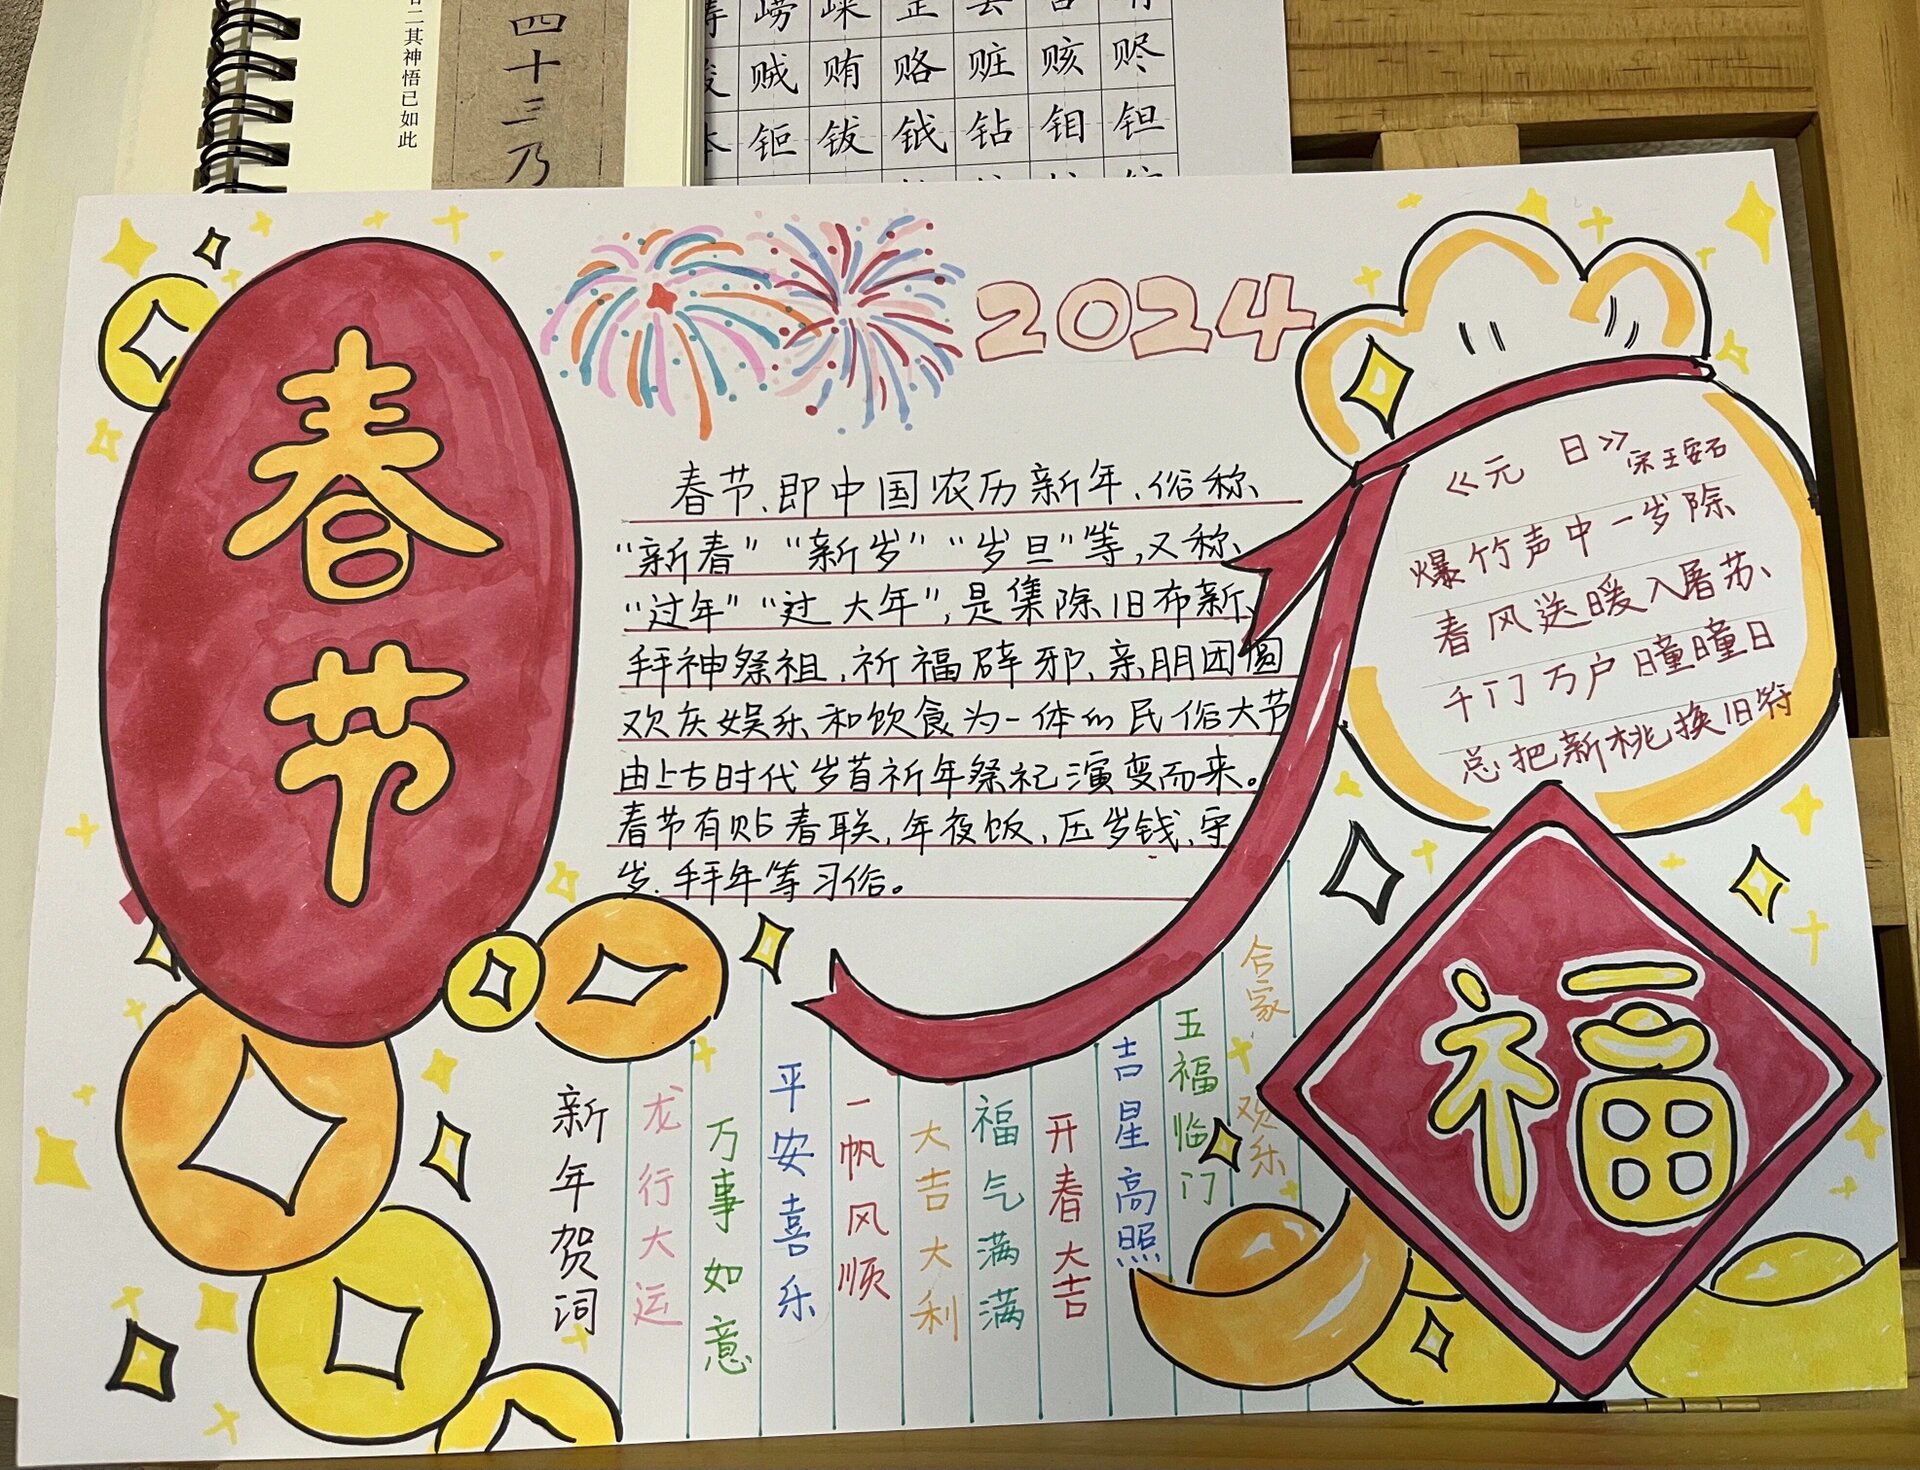 二其神悟已如此
四十三乃
贼贿赂赃赅赆
钜钹钺钻钼钽
春节
2024
春节、即中国农历新年、俗称、
“新春”“新岁”“岁旦”等,又称、
“过年”“过大年”,是集除旧布新、
拜神祭祖,祈福辟邪、亲朋团圆
欢庆娱乐和饮食为一体的民俗大节
由上古时代岁首祈年祭祀演变而来。
春节有贴春联,年夜饭,压岁钱,守
岁、拜年等习俗。
《元 日》宋王安石
爆竹声中一岁除
春风送暖入屠苏、
千门万户瞳瞳日
总把新桃换旧符
福
新年贺词
龙行大运
万事如意
平安喜乐
一帆风顺
大吉大利
福气满满
开春大吉
吉星高照
五福临门
合家欢乐